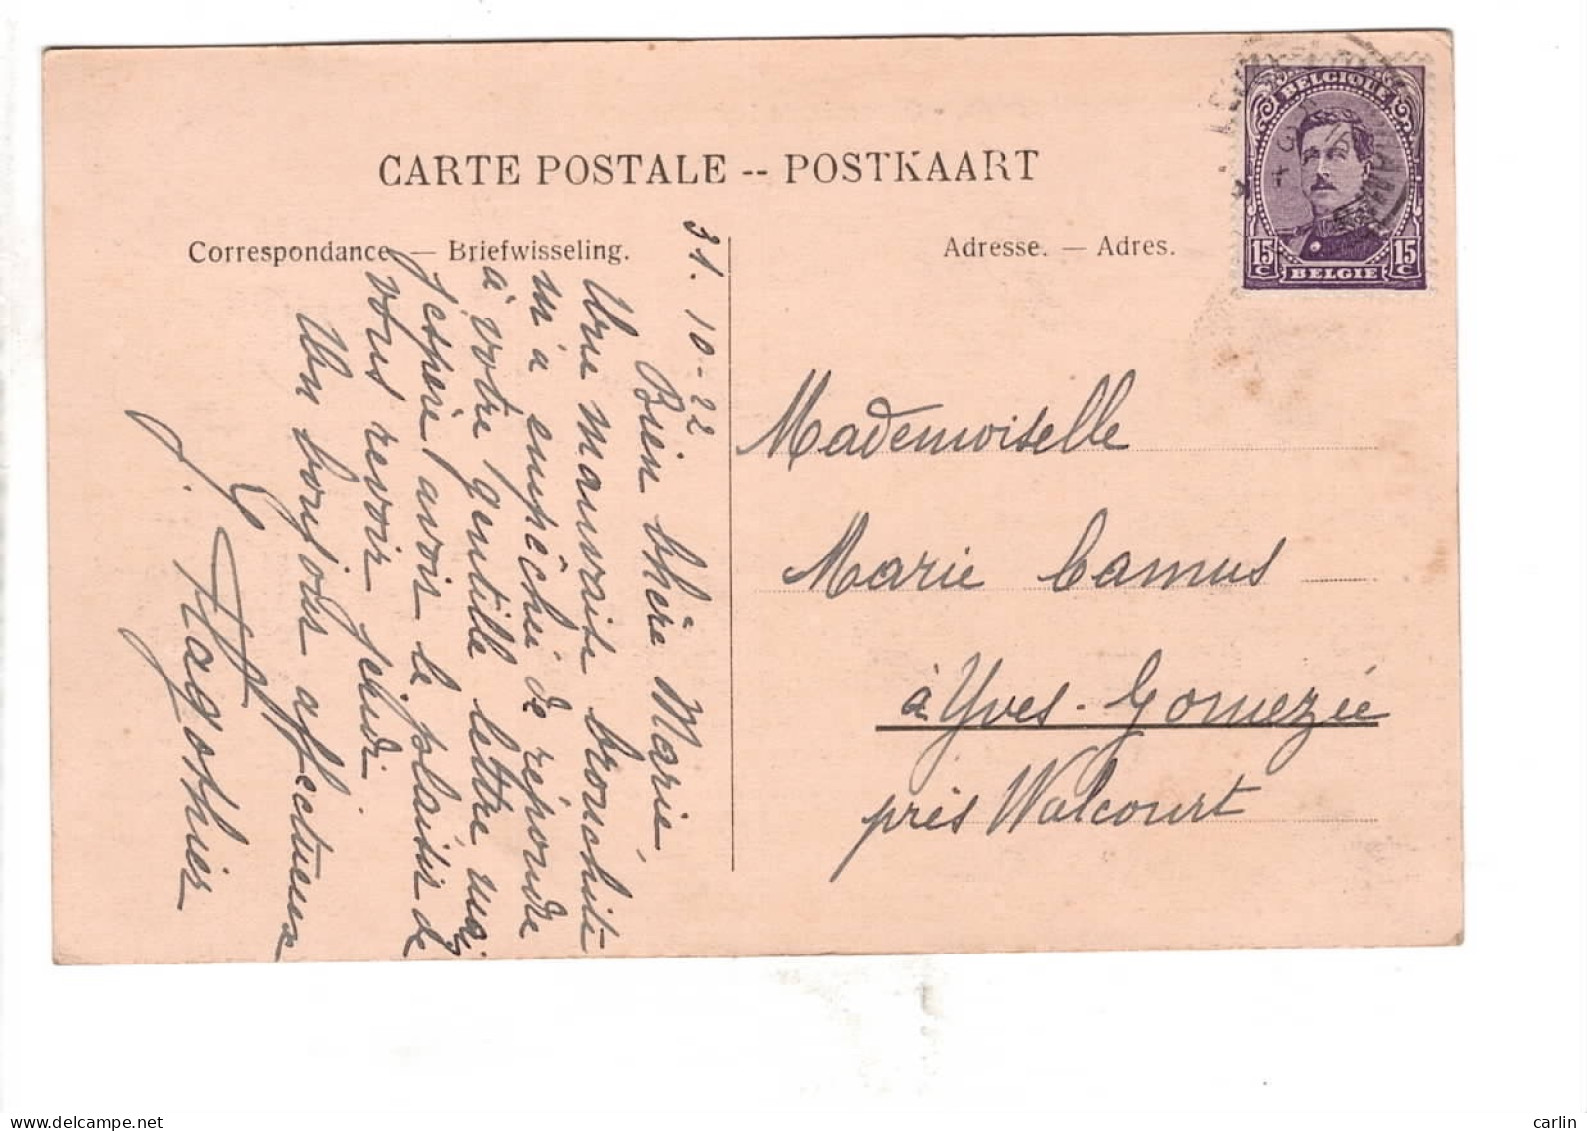 CARTE POSTALE -- POSTKAART
Correspondance. — Briefwisseling.
Adresse. — Adres.
BELGIQUE
15 C
15 C
BELGIE
31. 10 - 22
Bien Chère Marie,
Une mauvaise bronchite
m'a empêchée de répondre
à votre gentille lettre mais
j'espère avoir le plaisir de
vous revoir jeudi.
Un bonjour affectueux
Hagothier
Mademoiselle
Marie Camus
à Yves-Gomezée
près Walcourt
delcampe.net
carlin